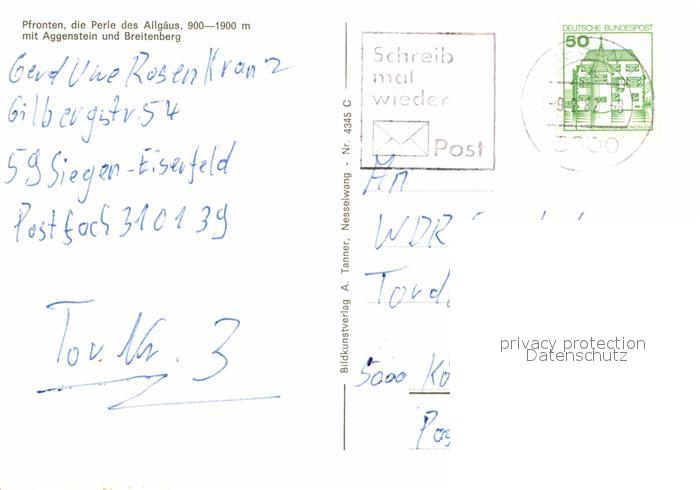 Pfronten, die Perle des Allgäus, 900—1900 m
mit Aggenstein und Breitenberg
Gerd Uwe Rosenkranz
Gilbergstr. 54
59 Siegen-Eiserfeld
Postfach 310139
Tor. Nr. 3
Bildkunstverlag A. Tanner, Nesselwang - Nr. 4345 C
Schreib
mal
wieder
Post
DEUTSCHE BUNDESPOST
50
An
WDR
Tord
5000 Kö
Pos
privacy protection
Datenschutz